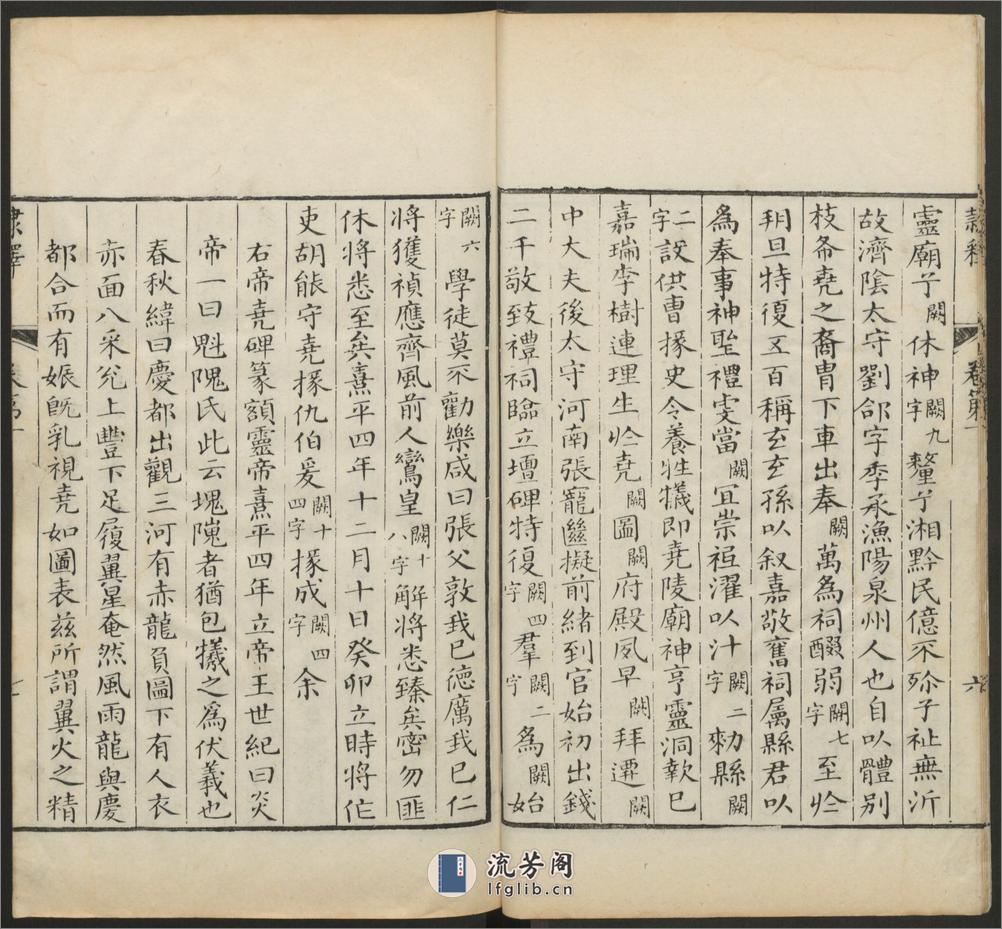 隸釋 卷第一 六
靈廟兮闕休神闕九字釐兮湘黔民億不殄子祉無沂
故濟陰太守劉郃字季承漁陽泉州人也自以體別
枝布堯之裔胄下車出奉闕萬為祠醊弱闕七字至於
玥旦特復五百稱玄玄孫以叙嘉敬奮祠属縣君以
為奉事神聖禮雯當闕宜崇祖濯以汁闕二字勑縣闕
二字設供曹掾史令養牲犧即堯陵廟神亨靈洞歆已
嘉瑞李樹連理生於堯闕圖闕府殿夙早闕拜遷闕
中大夫後太守河南張寵繼擬前緒到官始初出錢
二千敬致禮祠臨立壇碑特復闕四字羣闕二字為闕始
闕六字學徒莫不勸樂咸曰張父敦我已德厲我已仁
將獲禎應齊風前人鸞皇闕十八字解將悉臻矣密勿匪
休將悉至矣熹平四年十二月十日癸卯立時將作
吏胡能守堯掾仇伯爰闕十四字掾成闕四字余
右帝堯碑篆額靈帝熹平四年立帝王世紀曰炎
帝一曰魁隗氏此云塊隗者猶包犧之為伏羲也
春秋緯曰慶都出觀三河有赤龍負圖下有人衣
赤面八采兊上豐下足履翼星奄然風雨龍與慶
都合而有娠旣乳視堯如圖表茲所謂翼火之精
隸釋 卷第一
流芳阁
lfglib.cn